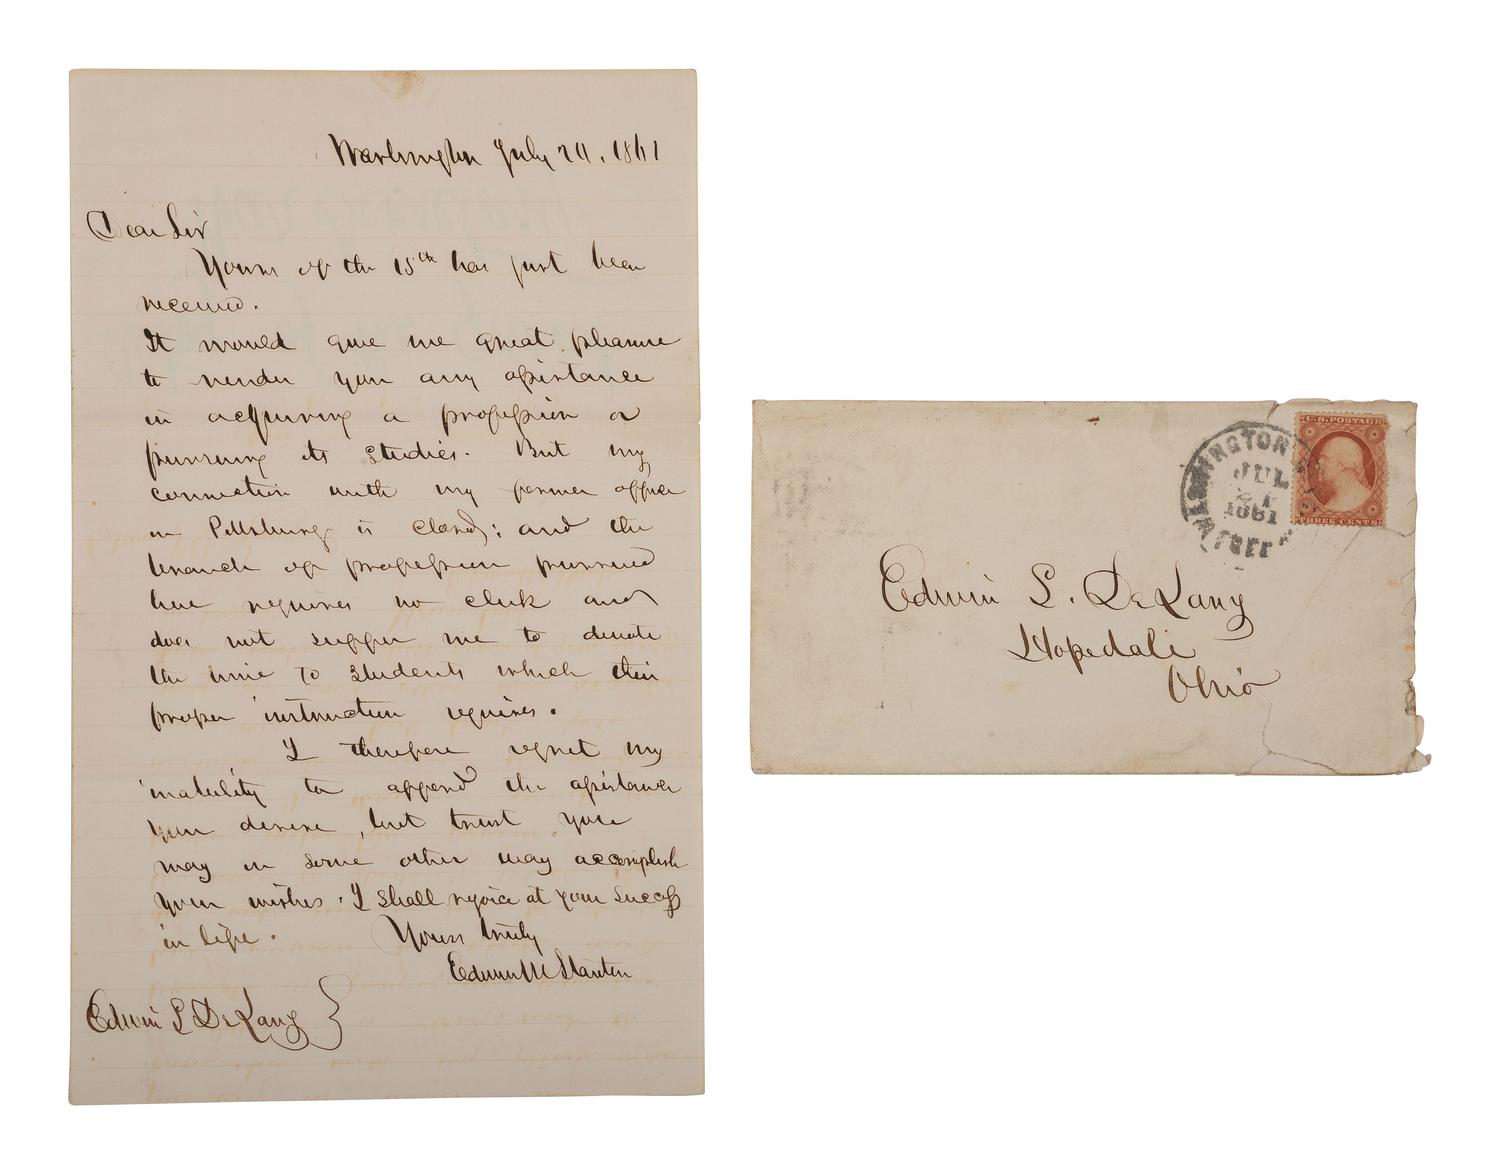 Washington July 20, 1861
Dear Sir
Yours of the 15th has just been
received.
It would give me great pleasure
to render you any assistance
in acquiring a profession or
pursuing its studies. But my
connection with my former office
in Pittsburg is closed; and the
branch of profession pursued
here requires no clerk and
does not suffer me to devote
the time to students which their
proper instruction requires.
I therefore regret my
inability to afford the assistance
you desire, but trust you
may in some other way accomplish
your wishes. I shall rejoice at your success
in life.
Yours truly
Edwin M Stanton
Edwin L DeLany
U.S. POSTAGE
THREE CENTS
WASHINGTON
JUL
21
1861
FREE
Edwin L. DeLany
Hopedale
Ohio